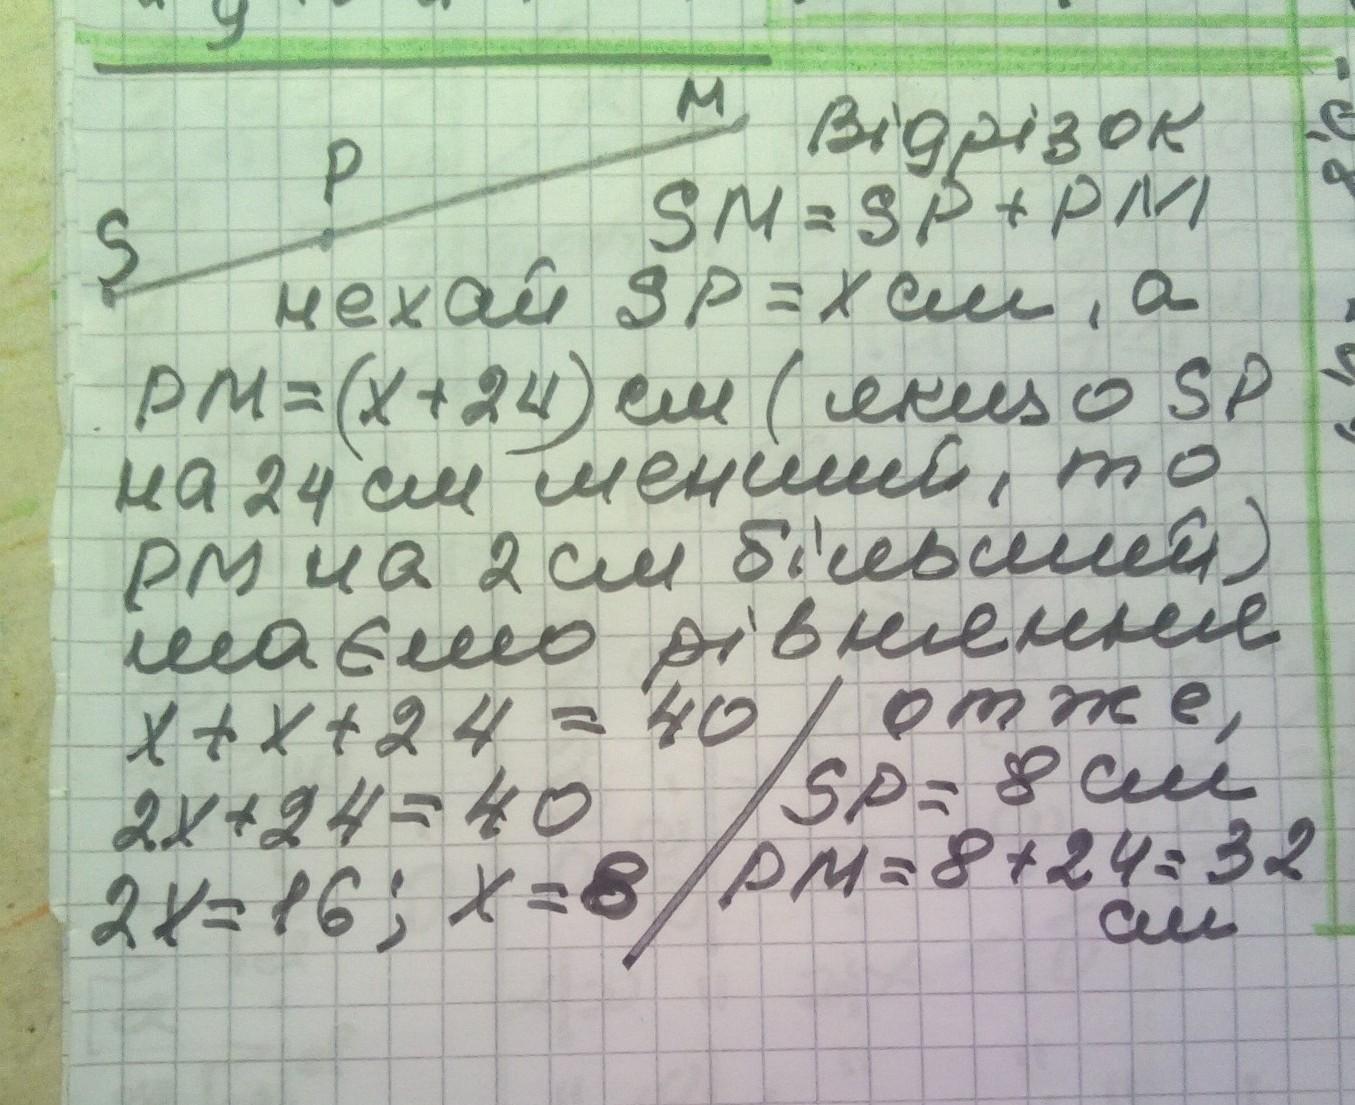 M
P
S
Відрізок
SM = SP + PM
нехай SP = x см, а
PM = (x + 24) см ( якщо SP
на 24 см менший, то
PM на 2 см більший)
маємо рівняння
x + x + 24 = 40
2x + 24 = 40
2x = 16; x = 8
отже,
SP = 8 см
PM = 8 + 24 = 32
см